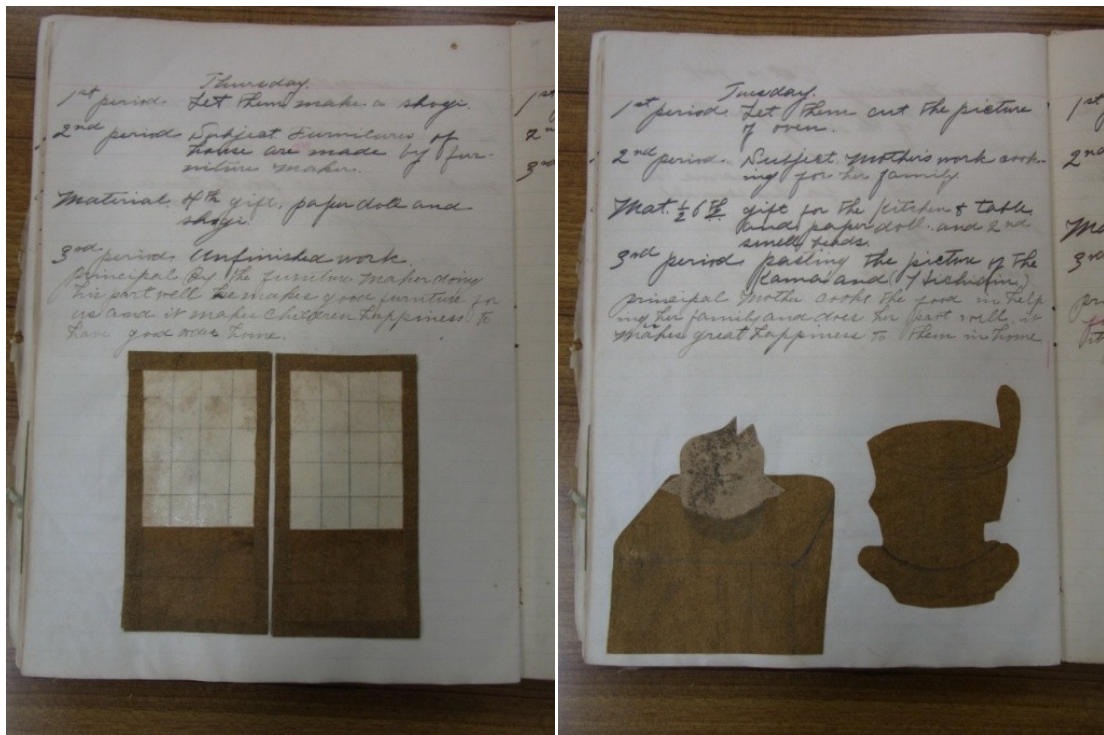 Thursday.
1st period. Let them make a shogi.
2nd period. Subject Furnitures of
house are made by fur-
niture maker.
Material. 4th gift, paper doll and
shogi.
3rd period. Unfinished work.
principal By the furniture maker doing
his part well he makes good furniture for
us and it makes children happiness to
have good home.
1st
2n
3rd
Tuesday.
1st period. Let them cut the picture
of oven.
2nd period. Subject. Mother's work cook-
ing for her family.
Mat. 1/2 6th gift for the kitchen & table
and paper doll. and 2nd
small beads.
3rd period. pasting the picture of the
Kama and (
principal Mother cooks the food in help
ing her family and does her part well, it
makes great happiness to them in home
1st
2nd
Ma
3rd
pri